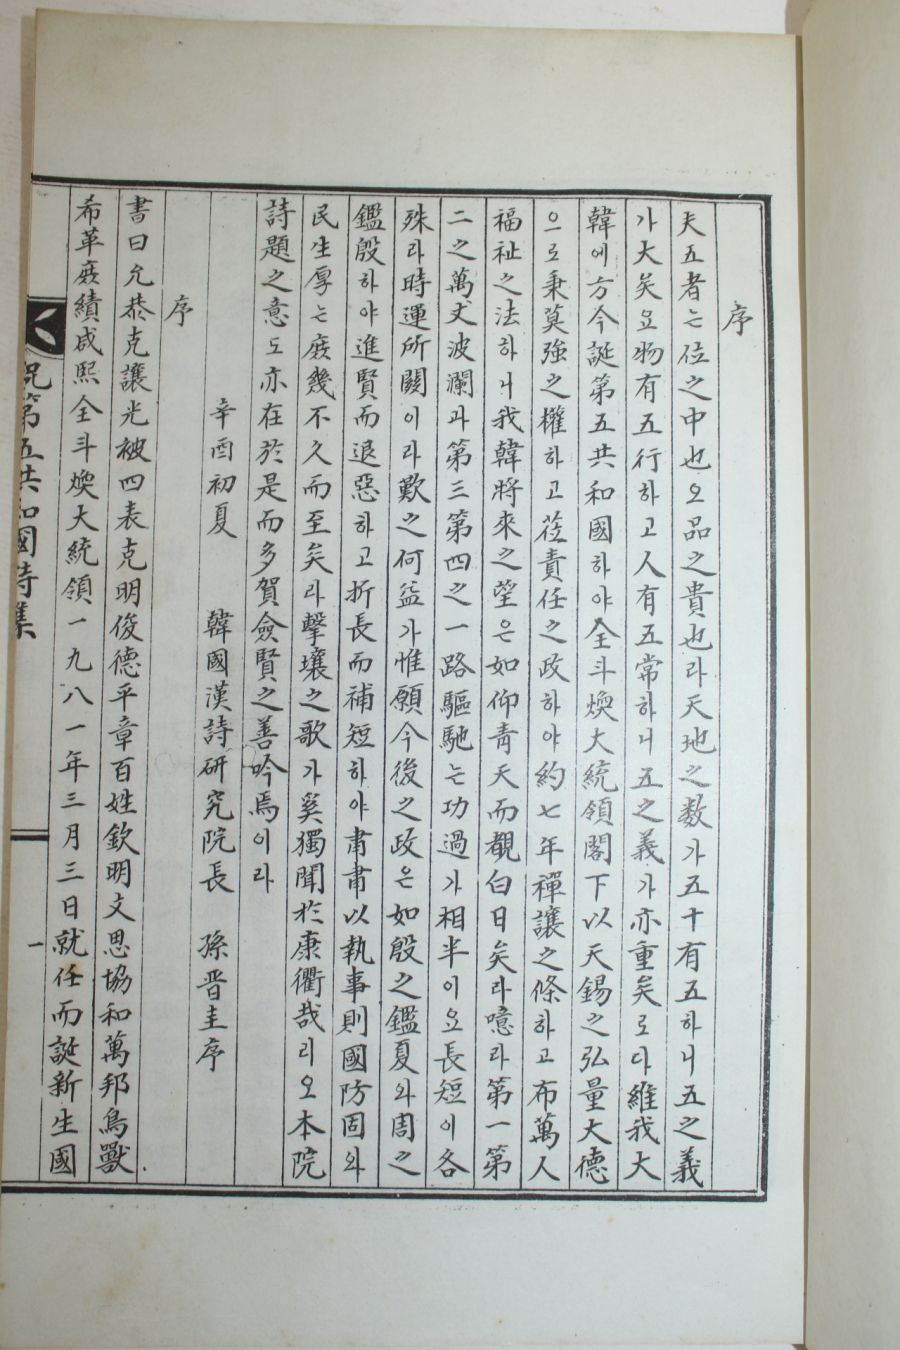 序
夫五者는位之中也오品之貴也라天地之數가五十有五하니五之義
가大矣요物有五行하고人有五常하니五之義가亦重矣로다維我大
韓에方今誕第五共和國하야全斗煥大統領閣下以天錫之弘量大德
으로秉莫強之權하고莅責任之政하야約七年禪讓之條하고布萬人
福祉之法하니我韓將來之望은如仰靑天而覩白日矣라噫라第一第
二之萬丈波瀾과第三第四之一路驅馳는功過가相半이요長短이各
殊라時運所關이라歎之何益가惟願今後之政은如殷之鑑夏와周之
鑑殷하야進賢而退惡하고折長而補短하야肅肅以執事則國防固와
民生厚는庶幾不久而至矣라擊壤之歌가奚獨聞於康衢哉리오本院
詩題之意도亦在於是而多賀僉賢之善吟焉이라
辛酉初夏 韓國漢詩硏究院長 孫晋圭序
序
書曰允恭克讓光被四表克明俊德平章百姓欽明文思協和萬邦鳥獸
希革庶績咸熙全斗煥大統領一九八一年三月三日就任而誕新生國
祝第五共和國詩集
一